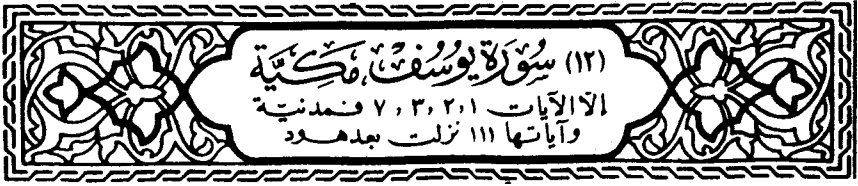 (١٢) سُورَة يُوسُفْ مَكِيَّة
إلّا الآيات ١ ، ٢ ، ٣ ، ٧ فمدنيّة
وآياتها ١١١ نزلت بعد هود